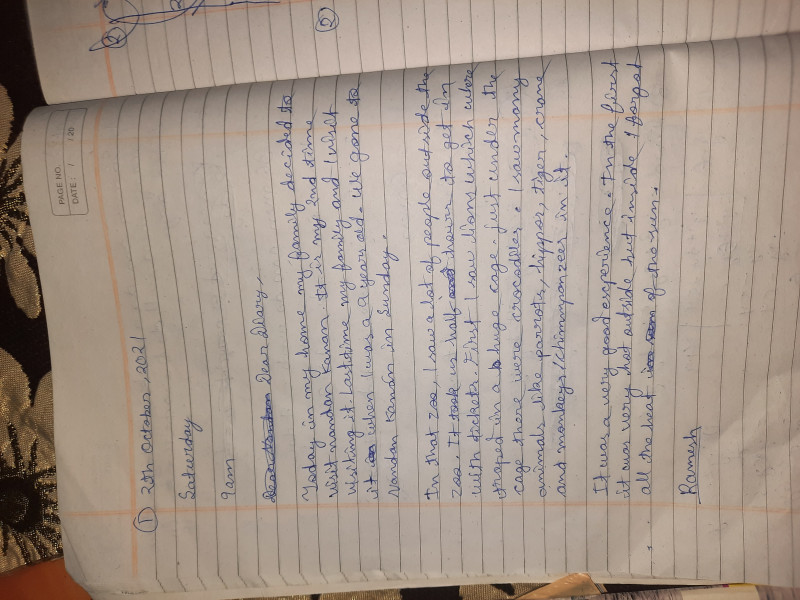 PAGE NO.
DATE: / / 20
① 30th October, 2021
Saturday
9am
Dear Diary,
Today in my home my family decided to
visit nandan Kanan It is my 2nd time
visiting it last time my family and I visit
it when I was a 9 years old. We gone to
Nandan Kanan in Sunday.
In that zoo, I saw a lot of people outside the
zoo. It took us half hours to get in
with tickets. First I saw lions which where
in a huge cage. Just under the
cage there were crocodiles. I saw many
animals like parrots, hippos, tiger, crane
and monkeys/chimpanzees in it.
It was a very good experience. In the first
it was very hot outside but inside I forgot
all the heat of the sun.
Ramesh
②
②